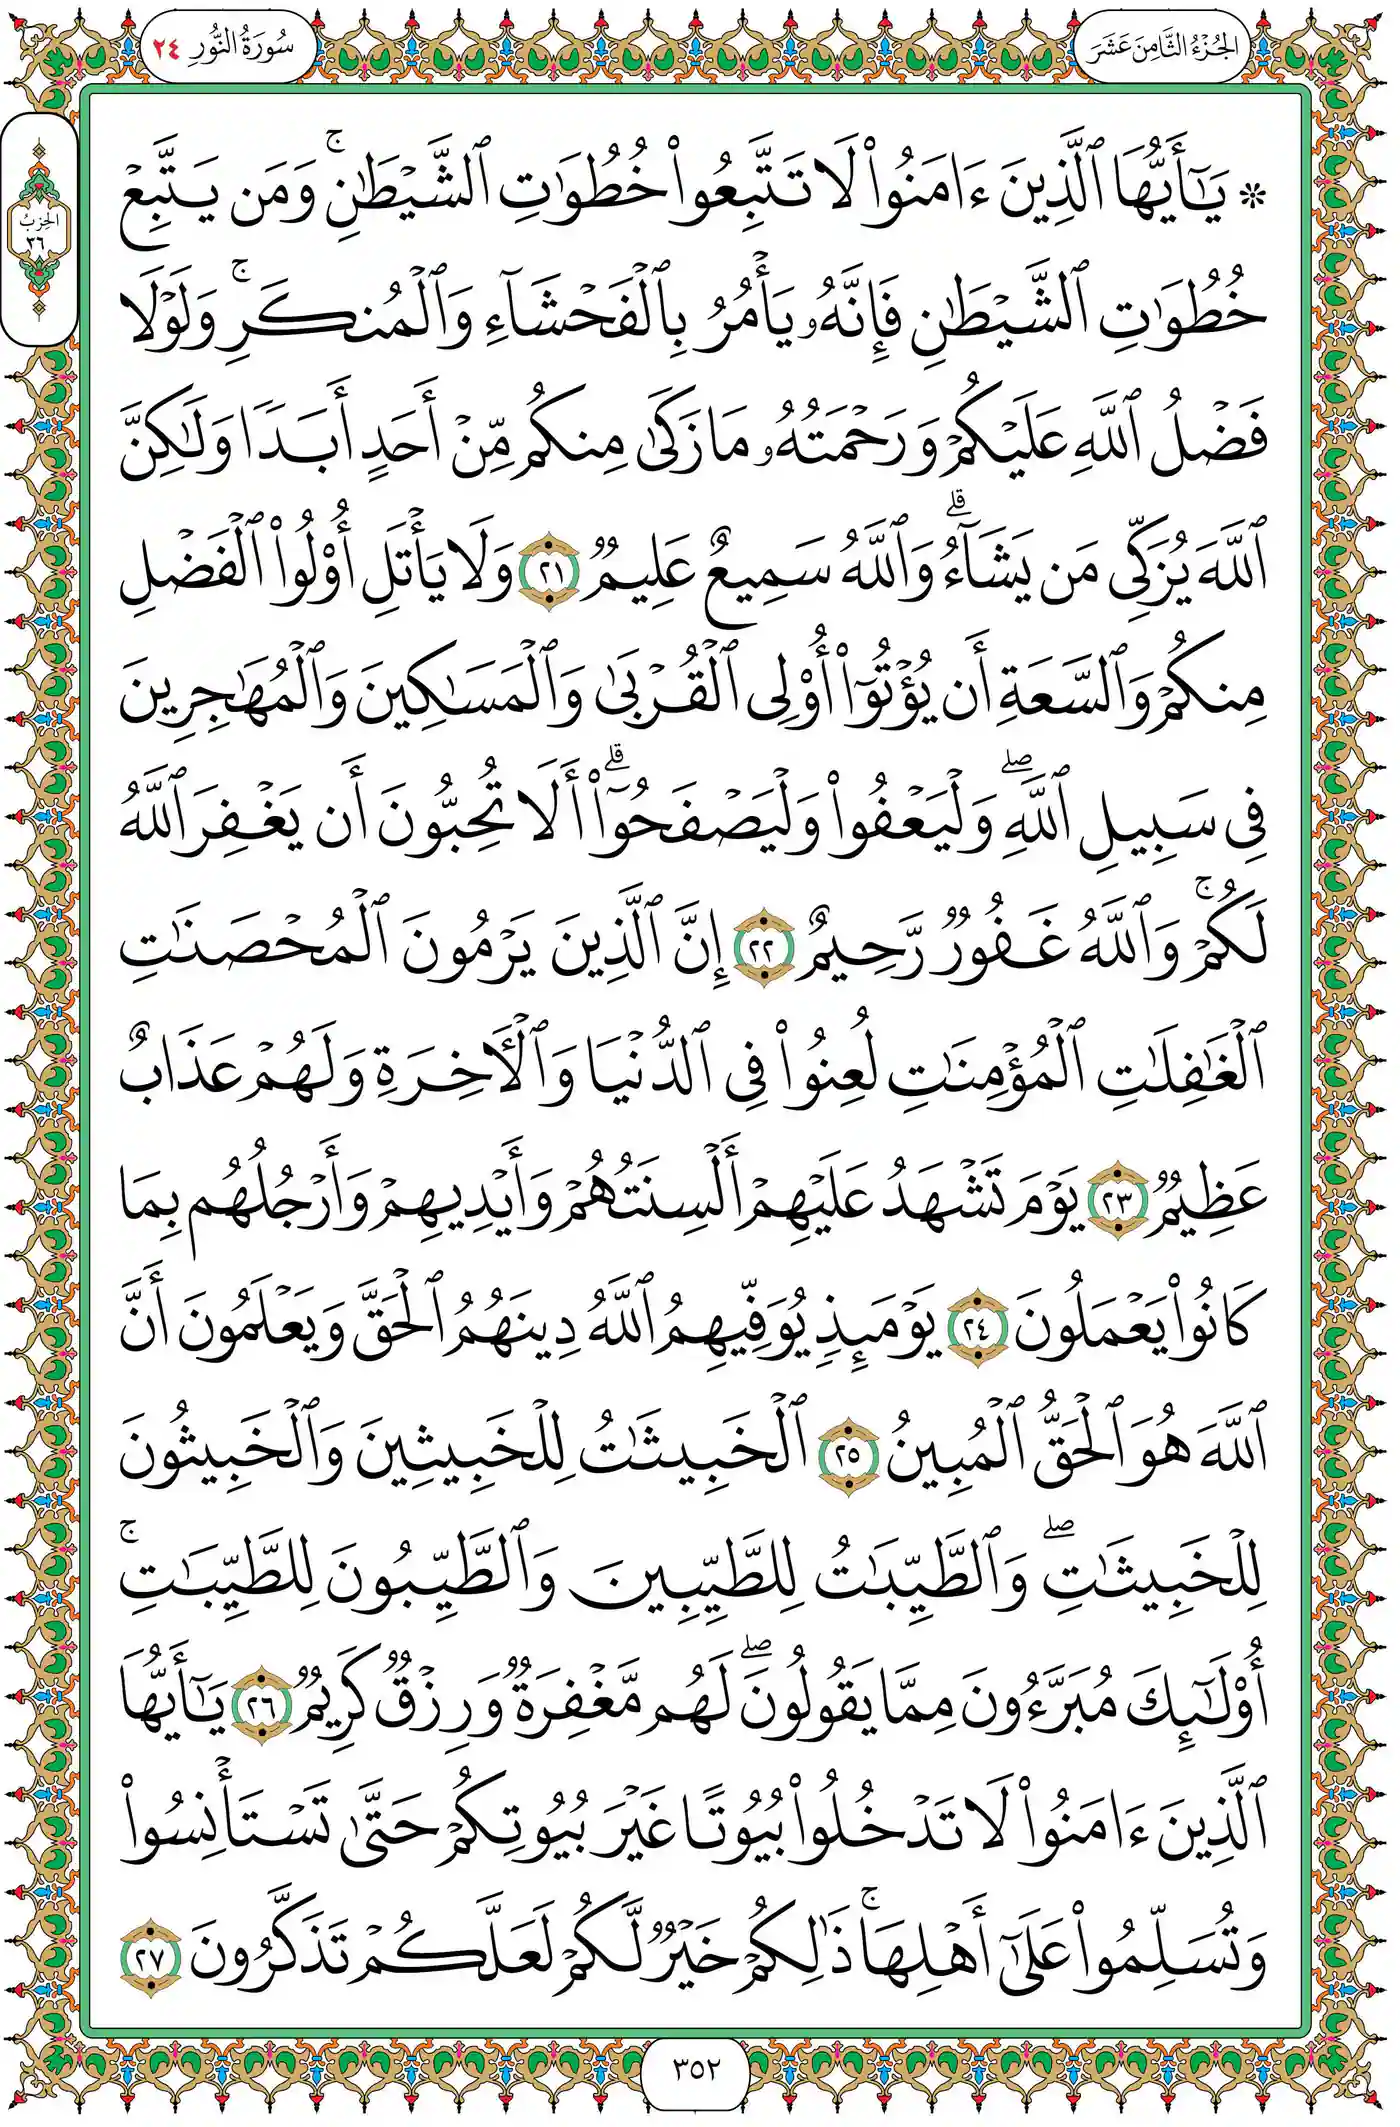 الجُزْءُ الثَّامِنَ عَشَرَ
سُورَةُ النُّورِ ٢٤
الحِزْبُ
٣٦
۞ يَٰٓأَيُّهَا ٱلَّذِينَ ءَامَنُواْ لَا تَتَّبِعُواْ خُطُوَٰتِ ٱلشَّيْطَٰنِۚ وَمَن يَتَّبِعْ
خُطُوَٰتِ ٱلشَّيْطَٰنِ فَإِنَّهُۥ يَأْمُرُ بِٱلْفَحْشَآءِ وَٱلْمُنكَرِۚ وَلَوْلَا
فَضْلُ ٱللَّهِ عَلَيْكُمْ وَرَحْمَتُهُۥ مَا زَكَىٰ مِنكُم مِّنْ أَحَدٍ أَبَدًا وَلَٰكِنَّ
ٱللَّهَ يُزَكِّي مَن يَشَآءُۗ وَٱللَّهُ سَمِيعٌ عَلِيمٌ ٢١ وَلَا يَأْتَلِ أُوْلُواْ ٱلْفَضْلِ
مِنكُمْ وَٱلسَّعَةِ أَن يُؤْتُوٓاْ أُوْلِي ٱلْقُرْبَىٰ وَٱلْمَسَٰكِينَ وَٱلْمُهَٰجِرِينَ
فِي سَبِيلِ ٱللَّهِۖ وَلْيَعْفُواْ وَلْيَصْفَحُوٓاْۗ أَلَا تُحِبُّونَ أَن يَغْفِرَ ٱللَّهُ
لَكُمْۚ وَٱللَّهُ غَفُورٌ رَّحِيمٌ ٢٢ إِنَّ ٱلَّذِينَ يَرْمُونَ ٱلْمُحْصَنَٰتِ
ٱلْغَٰفِلَٰتِ ٱلْمُؤْمِنَٰتِ لُعِنُواْ فِي ٱلدُّنْيَا وَٱلْأٓخِرَةِ وَلَهُمْ عَذَابٌ
عَظِيمٌ ٢٣ يَوْمَ تَشْهَدُ عَلَيْهِمْ أَلْسِنَتُهُمْ وَأَيْدِيهِمْ وَأَرْجُلُهُم بِمَا
كَانُواْ يَعْمَلُونَ ٢٤ يَوْمَئِذٍ يُوَفِّيهِمُ ٱللَّهُ دِينَهُمُ ٱلْحَقَّ وَيَعْلَمُونَ أَنَّ
ٱللَّهَ هُوَ ٱلْحَقُّ ٱلْمُبِينُ ٢٥ ٱلْخَبِيثَٰتُ لِلْخَبِيثِينَ وَٱلْخَبِيثُونَ
لِلْخَبِيثَٰتِۖ وَٱلطَّيِّبَٰتُ لِلطَّيِّبِينَ وَٱلطَّيِّبُونَ لِلطَّيِّبَٰتِۚ
أُوْلَٰٓئِكَ مُبَرَّءُونَ مِمَّا يَقُولُونَۖ لَهُم مَّغْفِرَةٌ وَرِزْقٌ كَرِيمٌ ٢٦ يَٰٓأَيُّهَا
ٱلَّذِينَ ءَامَنُواْ لَا تَدْخُلُواْ بُيُوتًا غَيْرَ بُيُوتِكُمْ حَتَّىٰ تَسْتَأْنِسُواْ
وَتُسَلِّمُواْ عَلَىٰٓ أَهْلِهَاۚ ذَٰلِكُمْ خَيْرٌ لَّكُمْ لَعَلَّكُمْ تَذَكَّرُونَ ٢٧
٣٥٢